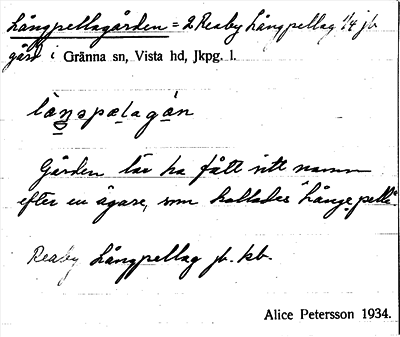 Långpellagården = 2 Reaby Långpellag 1/4 jb
gård i Gränna sn, Vista hd, Jkpg. l.
Gården lär ha fått sitt namn
efter en ägare, som kallades "Långe pelle".
Reaby Långpellag jb. kb.
Alice Petersson 1934.